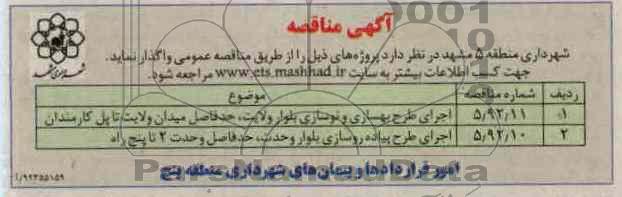 آگهی مناقصه
شهرداری منطقه ۵ مشهد در نظر دارد پروژه‌های ذیل را از طریق مناقصه عمومی واگذار نماید.
جهت کسب اطلاعات بیشتر به سایت www.ets.mashhad.ir مراجعه شود.
ردیف شماره مناقصه موضوع
۱ ۵٫۹۲٫۱۱ اجرای طرح بهسازی و نوسازی بلوار ولایت، حدفاصل میدان ولایت تا پل کارمندان
۲ ۵٫۹۲٫۱۰ اجرای طرح پیاده‌روسازی بلوار وحدت، حدفاصل وحدت ۲ تا پنج راه
امور قراردادها و پیمان‌های شهرداری منطقه پنج
۹۲۳۵۵۱۵۹/آ